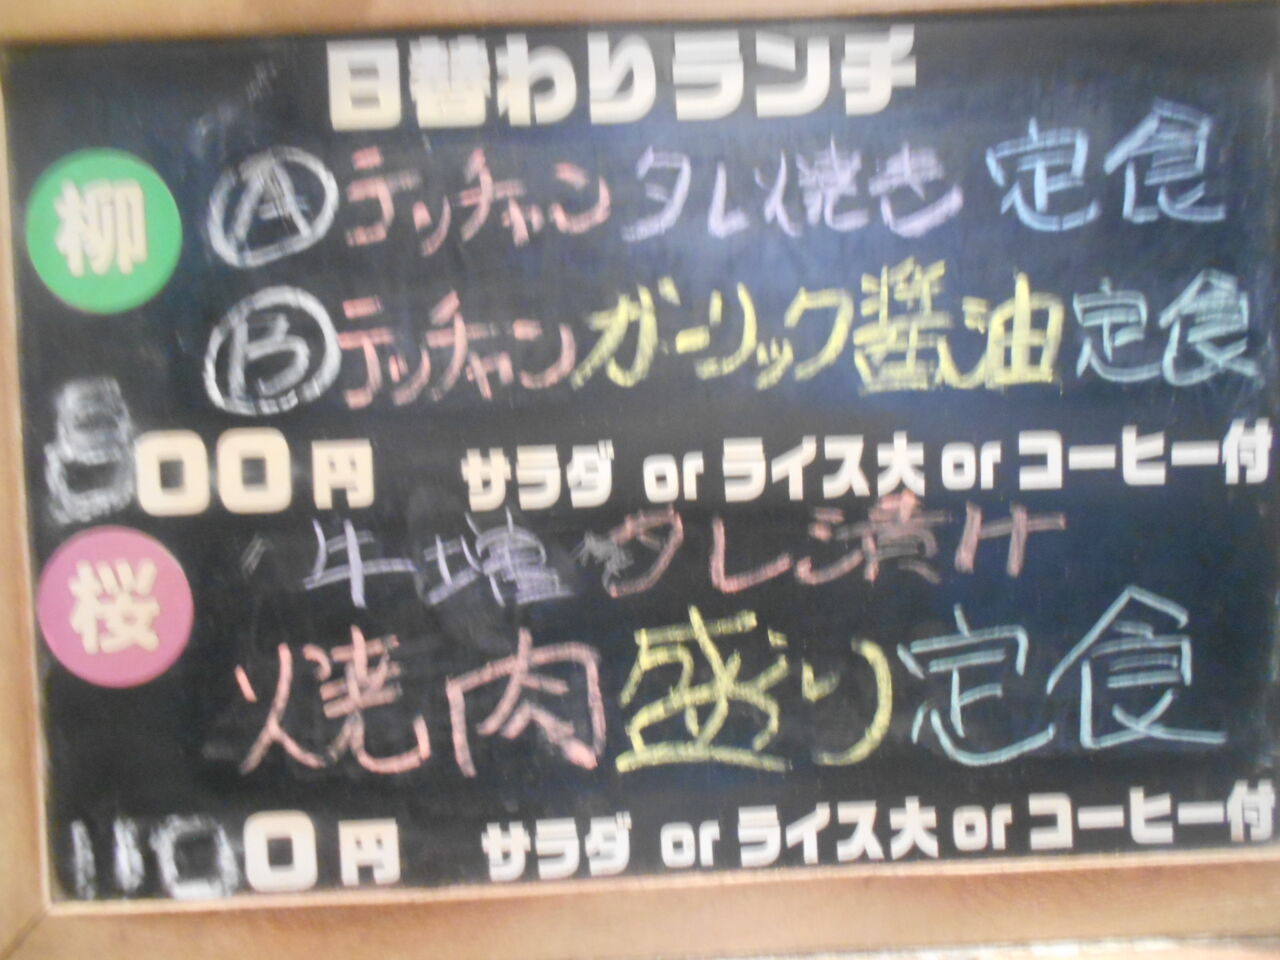 日替わりランチ
柳 Ⓐ テッチャンタレ焼き 定食
Ⓑ テッチャンガーリック醤油定食
800円 サラダ or ライス大 or コーヒー付
桜 牛塩・タレ漬け
焼肉盛り定食
1100円 サラダ or ライス大 or コーヒー付